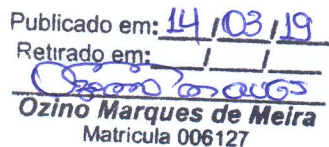 Publicado em: 14 / 03 / 19
Retirado em: / /
Ozino Marques de Meira
Matricula 006127